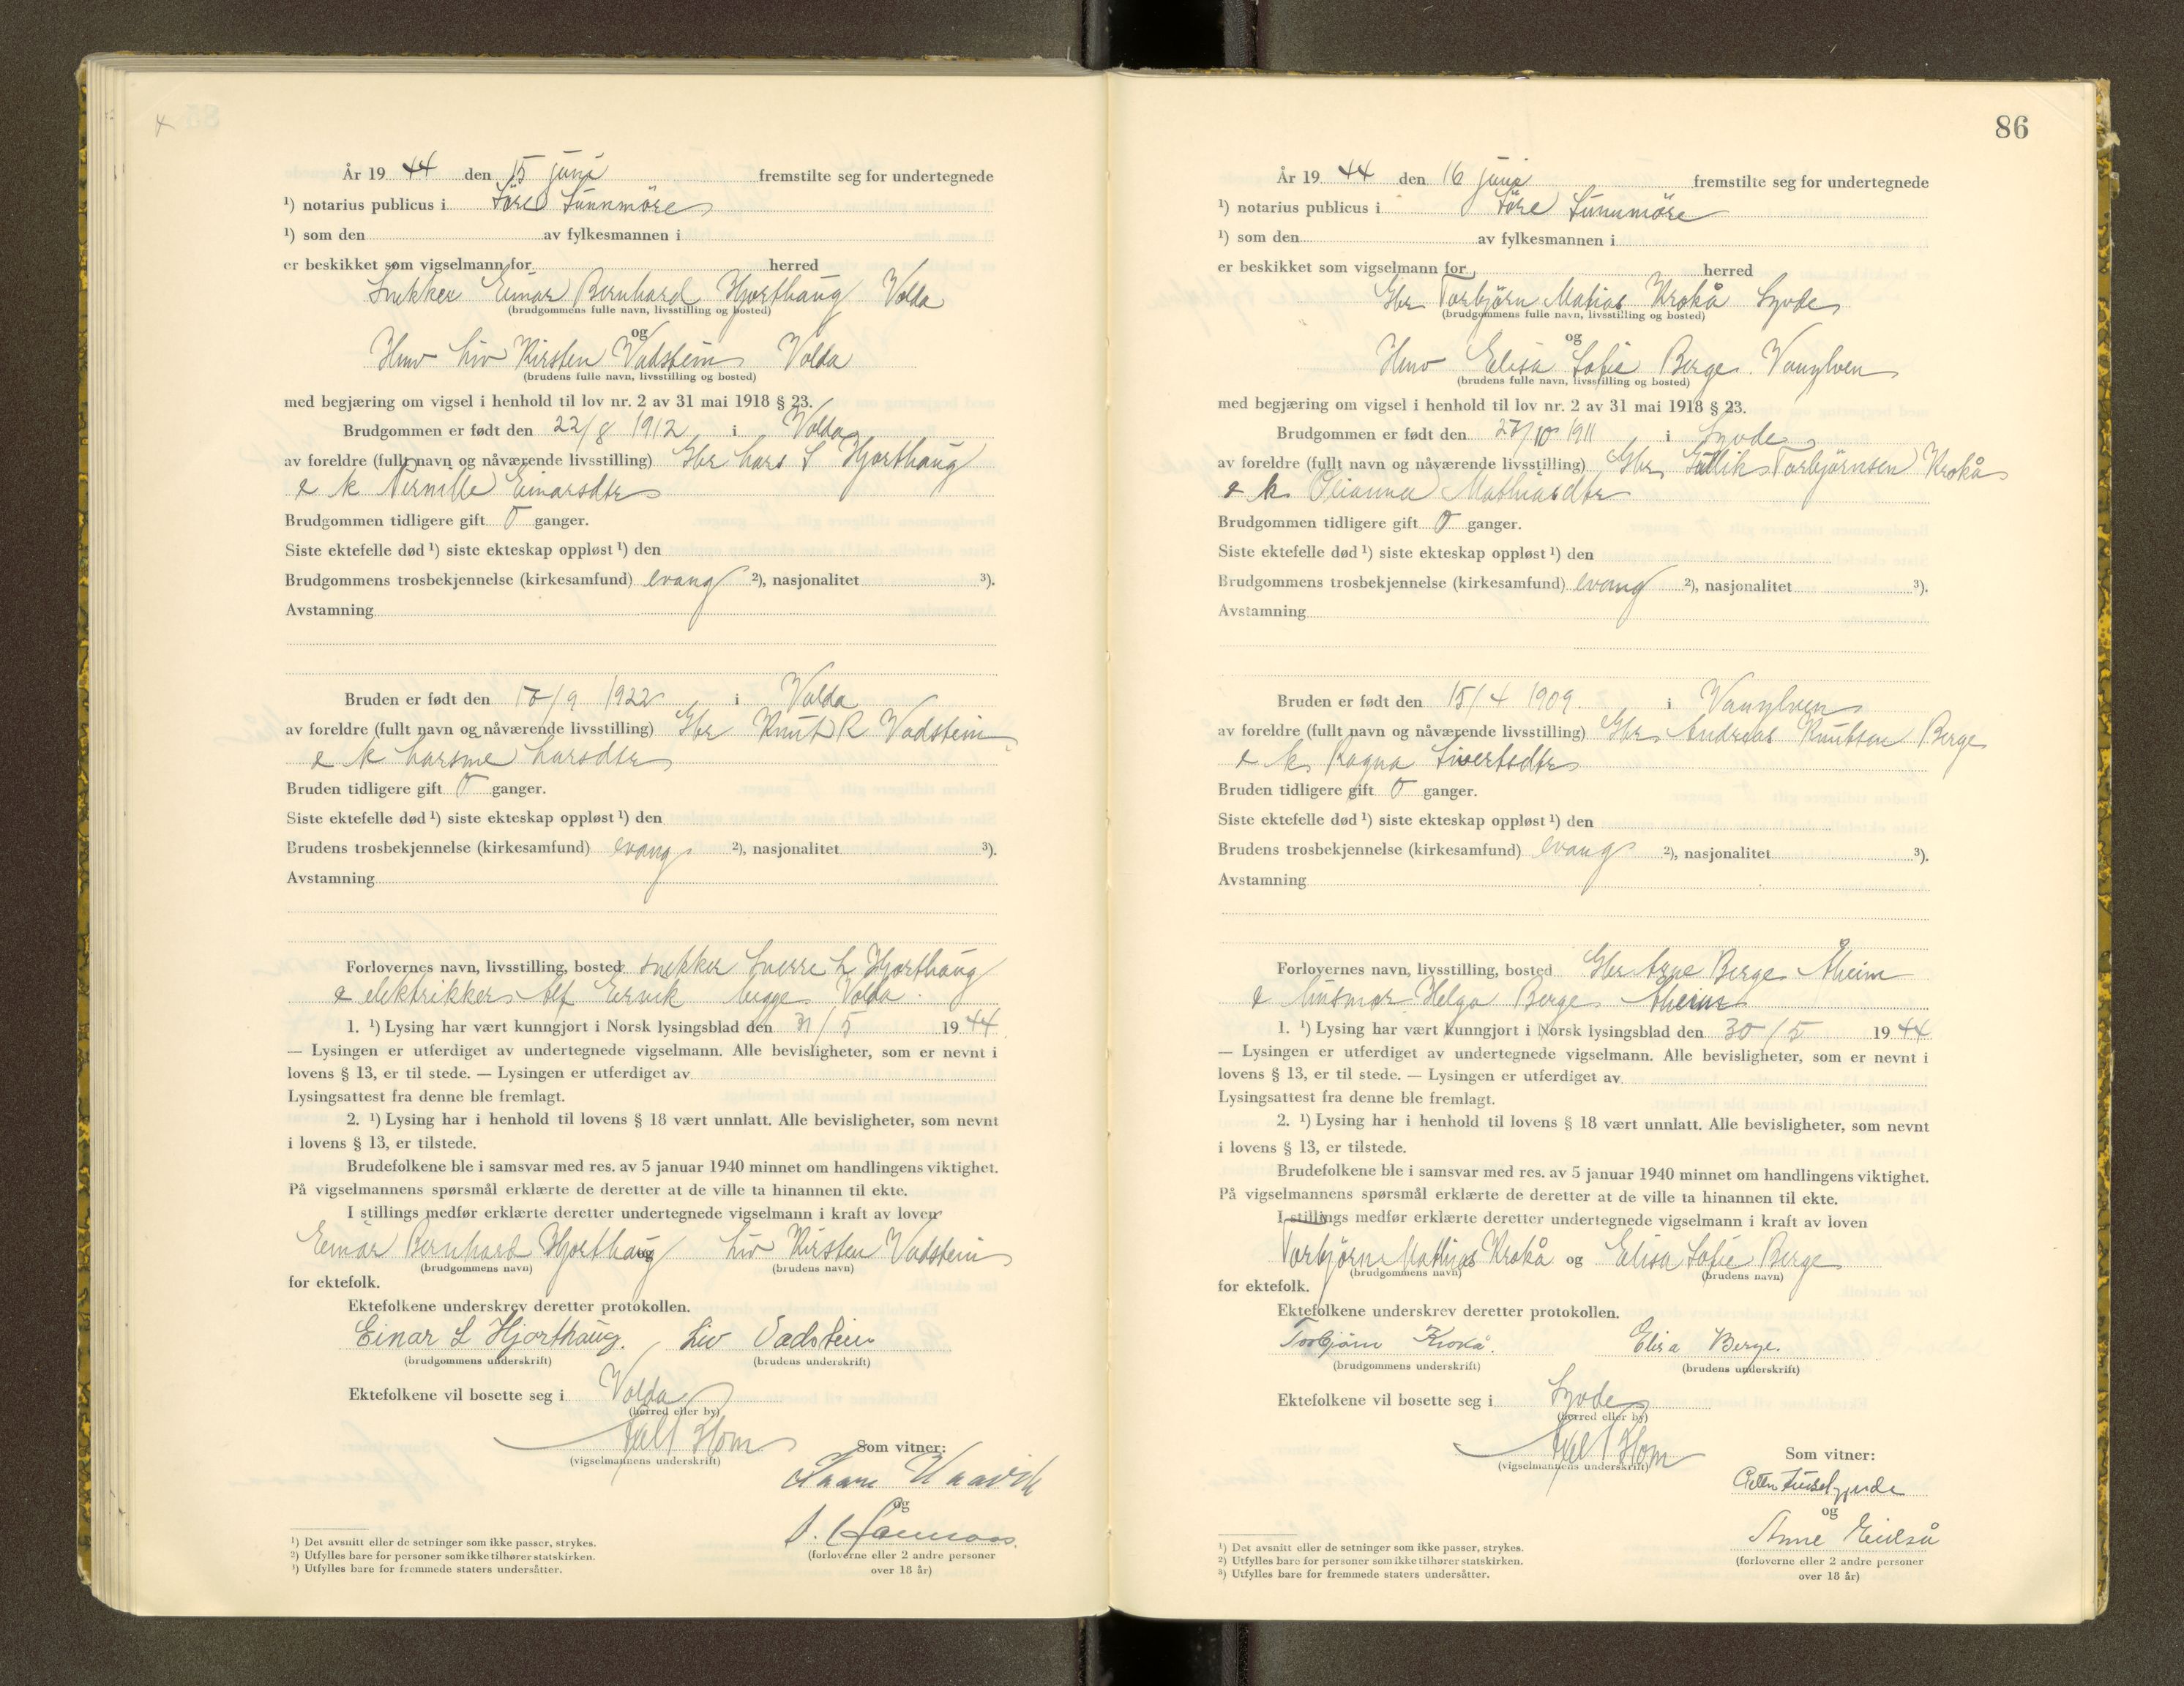 År 19 44 den 15 juni fremstilte seg for undertegnede
¹) notarius publicus i Söre Sunnmöre
¹) som den av fylkesmannen i
er beskikket som vigselmann for herred
Snekker Einar Bernhard Hjorthaug Volda
(brudgommens fulle navn, livsstilling og bosted)
og
Hmv Liv Kirsten Vadstein Volda
(brudens fulle navn, livsstilling og bosted)
med begjæring om vigsel i henhold til lov nr. 2 av 31 mai 1918 § 23.
Brudgommen er født den 22/8 1912 i Volda
av foreldre (fullt navn og nåværende livsstilling) Gbr Lars S Hjorthaug
& k Pernille Einarsdtr
Brudgommen tidligere gift 0 ganger.
Siste ektefelle død ¹) siste ekteskap oppløst ¹) den
Brudgommens trosbekjennelse (kirkesamfund) evang ²), nasjonalitet ³).
Avstamning
Bruden er født den 10/9 1922 i Volda
av foreldre (fullt navn og nåværende livsstilling) Gbr Knut R Vadstein
& k Larsine Larsdtr
Bruden tidligere gift 0 ganger.
Siste ektefelle død ¹) siste ekteskap oppløst ¹) den
Brudens trosbekjennelse (kirkesamfund) evang ²), nasjonalitet ³).
Avstamning
Forlovernes navn, livsstilling, bosted snekker Sverre L Hjorthaug
& elektrikker Alf Ervik begge Volda.
1. ¹) Lysing har vært kunngjort i Norsk lysingsblad den 31/5 19 44
— Lysingen er utferdiget av undertegnede vigselmann. Alle bevisligheter, som er nevnt i
lovens § 13, er til stede. — Lysingen er utferdiget av
Lysingsattest fra denne ble fremlagt.
2. ¹) Lysing har i henhold til lovens § 18 vært unnlatt. Alle bevisligheter, som nevnt
i lovens § 13, er tilstede.
Brudefolkene ble i samsvar med res. av 5 januar 1940 minnet om handlingens viktighet.
På vigselmannens spørsmål erklærte de deretter at de ville ta hinannen til ekte.
I stillings medfør erklærte deretter undertegnede vigselmann i kraft av loven
Einar Bernhard Hjorthaug Liv Kirsten Vadstein
(brudgommens navn) (brudens navn)
for ektefolk.
Ektefolkene underskrev deretter protokollen.
Einar L Hjorthaug. Liv Vadstein
(brudgommens underskrift) (brudens underskrift)
Ektefolkene vil bosette seg i Volda
(herred eller by)
Hom
(vigselmannens underskrift)
Som vitner:
og
(forloverne eller 2 andre personer
over 18 år)
¹) Det avsnitt eller de setninger som ikke passer, strykes.
²) Utfylles bare for personer som ikke tilhører statskirken.
³) Utfylles bare for fremmede staters undersåtter.
86
År 19 44 den 16 juni fremstilte seg for undertegnede
¹) notarius publicus i Söre Sunnmöre
¹) som den av fylkesmannen i
er beskikket som vigselmann for herred
Gbr Torbjörn Matias Krokå Syvde
(brudgommens fulle navn, livsstilling og bosted)
og
Hmv Elisa Sofie Berge Vanylven
(brudens fulle navn, livsstilling og bosted)
med begjæring om vigsel i henhold til lov nr. 2 av 31 mai 1918 § 23.
Brudgommen er født den 27/10 1911 i Syvde
av foreldre (fullt navn og nåværende livsstilling) Gbr Gullik Torbjörnsen Krokå
& k Oleanna Mathiasdtr
Brudgommen tidligere gift 0 ganger.
Siste ektefelle død ¹) siste ekteskap oppløst ¹) den
Brudgommens trosbekjennelse (kirkesamfund) evang ²), nasjonalitet ³).
Avstamning
Bruden er født den 15/4 1909. i Vanylven
av foreldre (fullt navn og nåværende livsstilling) Gbr Andreas Knutsen Berge
& k Ragna Sivertsdtr
Bruden tidligere gift 0 ganger.
Siste ektefelle død ¹) siste ekteskap oppløst ¹) den
Brudens trosbekjennelse (kirkesamfund) evang ²), nasjonalitet ³).
Avstamning
Forlovernes navn, livsstilling, bosted Gbr Arne Berge Åheim
& husmor Helga Berge Åheim
1. ¹) Lysing har vært kunngjort i Norsk lysingsblad den 30/5 19 44
— Lysingen er utferdiget av undertegnede vigselmann. Alle bevisligheter, som er nevnt i
lovens § 13, er til stede. — Lysingen er utferdiget av
Lysingsattest fra denne ble fremlagt.
2. ¹) Lysing har i henhold til lovens § 18 vært unnlatt. Alle bevisligheter, som nevnt
i lovens § 13, er tilstede.
Brudefolkene ble i samsvar med res. av 5 januar 1940 minnet om handlingens viktighet.
På vigselmannens spørsmål erklærte de deretter at de ville ta hinannen til ekte.
I stillings medfør erklærte deretter undertegnede vigselmann i kraft av loven
Torbjörn Mathias Krokå og Elisa Sofie Berge
(brudgommens navn) (brudens navn)
for ektefolk.
Ektefolkene underskrev deretter protokollen.
Torbjørn Krokå. Elisa Berge.
(brudgommens underskrift) (brudens underskrift)
Ektefolkene vil bosette seg i Syvde
(herred eller by)
Hom
(vigselmannens underskrift)
Som vitner:
og
Anne
(forloverne eller 2 andre personer
over 18 år)
¹) Det avsnitt eller de setninger som ikke passer, strykes.
²) Utfylles bare for personer som ikke tilhører statskirken.
³) Utfylles bare for fremmede staters undersåtter.